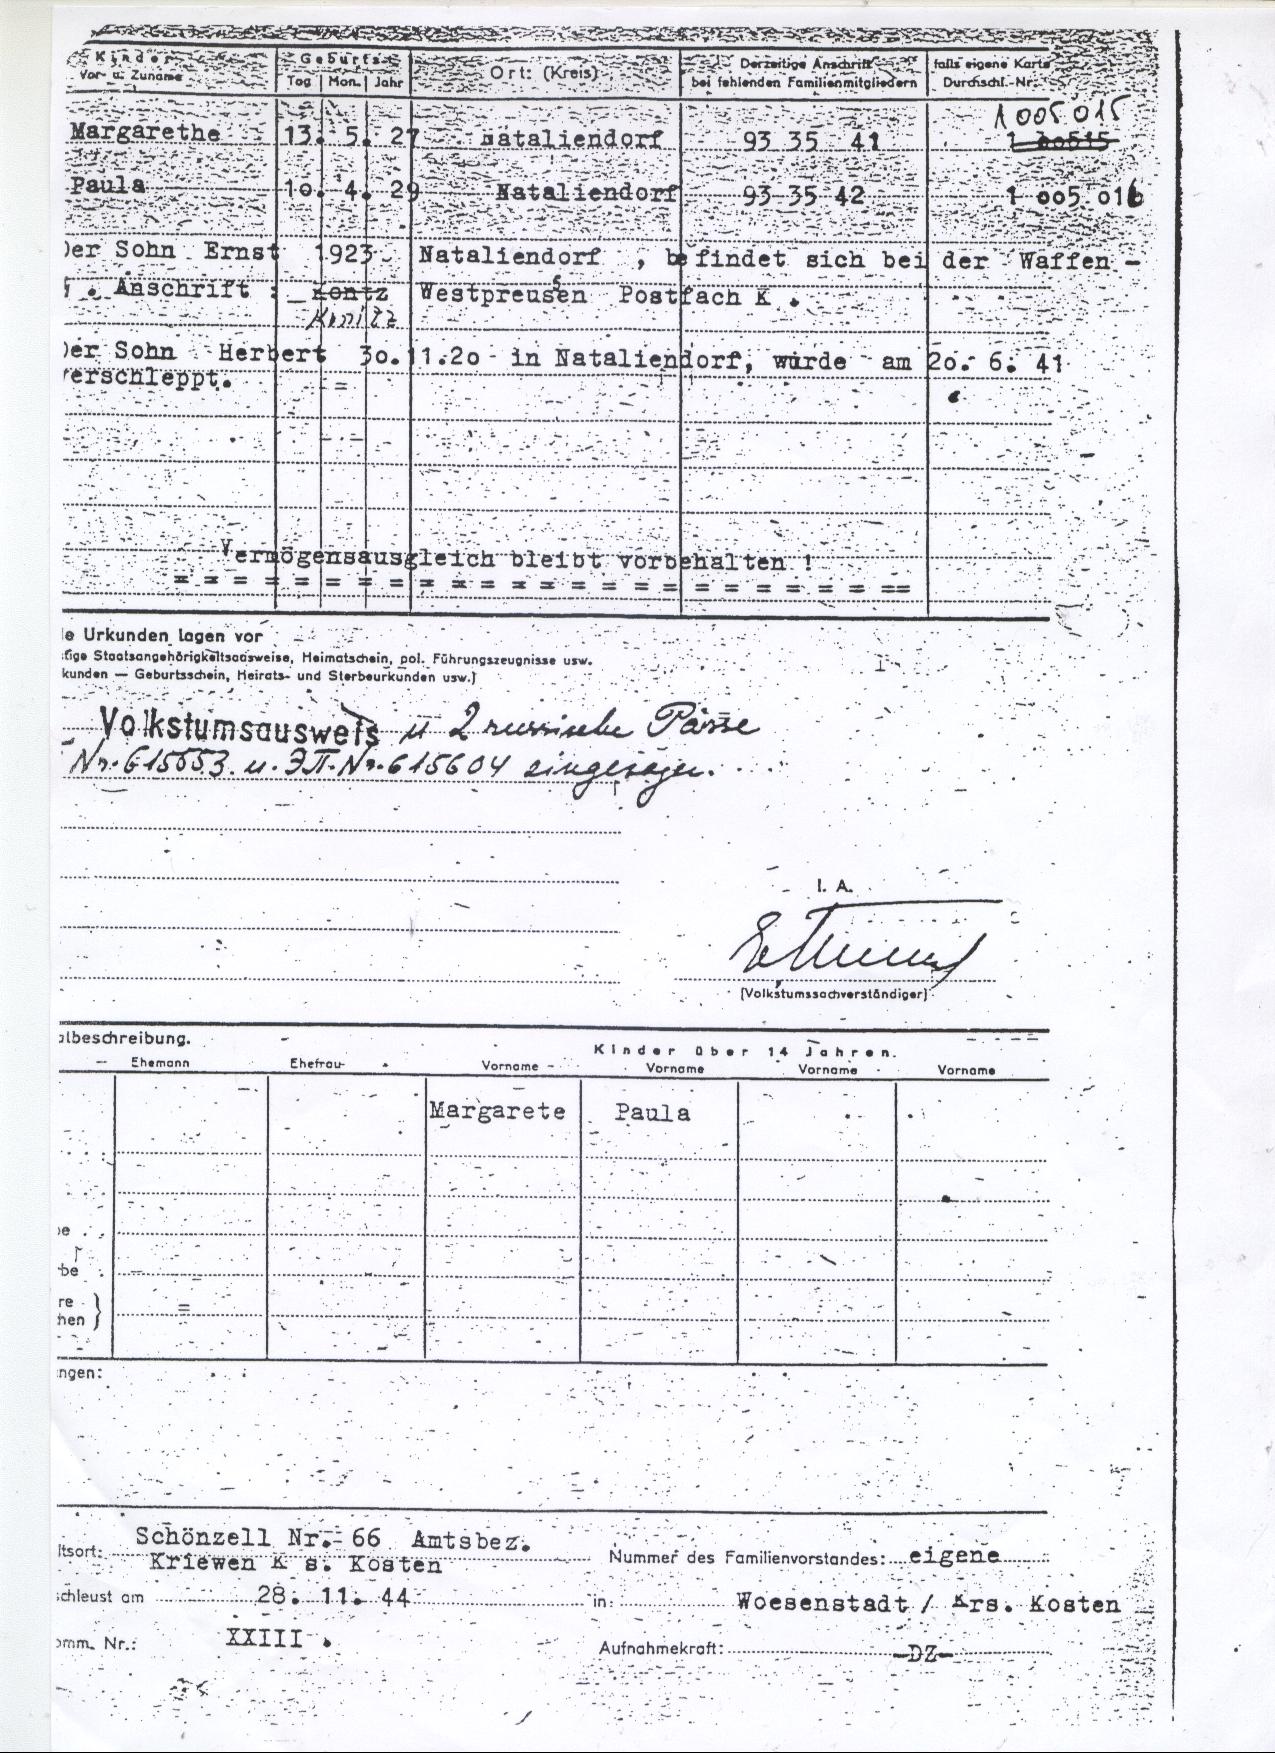 Kinder Geburts- Ort: (Kreis) Derzeitige Anschrift falls eigene Karte
Vor- u. Zuname Tag Mon. Jahr bei fehlenden Familienmitgliedern Durchschl.-Nr.
1 005 015
Margarethe 13. 5. 27 Nataliendorf 93 35 41
Paula 10. 4. 29 Nataliendorf 93 35 42 1 005 016
Der Sohn Ernst 1923 Nataliendorf , befindet sich bei der Waffen -
. Anschrift : Kontz Westpreusen Postfach K .
s
Konitz
Der Sohn Herbert 30.11.20 in Nataliendorf, wurde am 20. 6. 41
verschleppt. =
Vermögensausgleich bleibt vorbehalten !
= = = = = = = = = = = = = = = = = = = = = = = ==
le Urkunden lagen vor
Staatsangehörigkeitsausweise, Heimatschein, pol. Führungszeugnisse usw.
kunden — Geburtsschein, Heirats- und Sterbeurkunden usw.)
Volkstumsausweis u 2 russische Pässe
Nr. 615553 u. ЭП-Nr. 615604 eingezogen.
I. A.
(Volkstumssachverständiger)
albeschreibung.
Kinder über 14 Jahren.
Ehemann Ehefrau Vorname Vorname Vorname Vorname
Margarete Paula
be
re
hen }
=
ngen:
Schönzell Nr.- 66 Amtsbez.
ltsort: Kriewen K s. Kosten Nummer des Familienvorstandes: eigene
schleust am 28. 11. 44 in: Woesenstadt / Krs. Kosten
omm. Nr.: XXIII . Aufnahmekraft: -DZ-